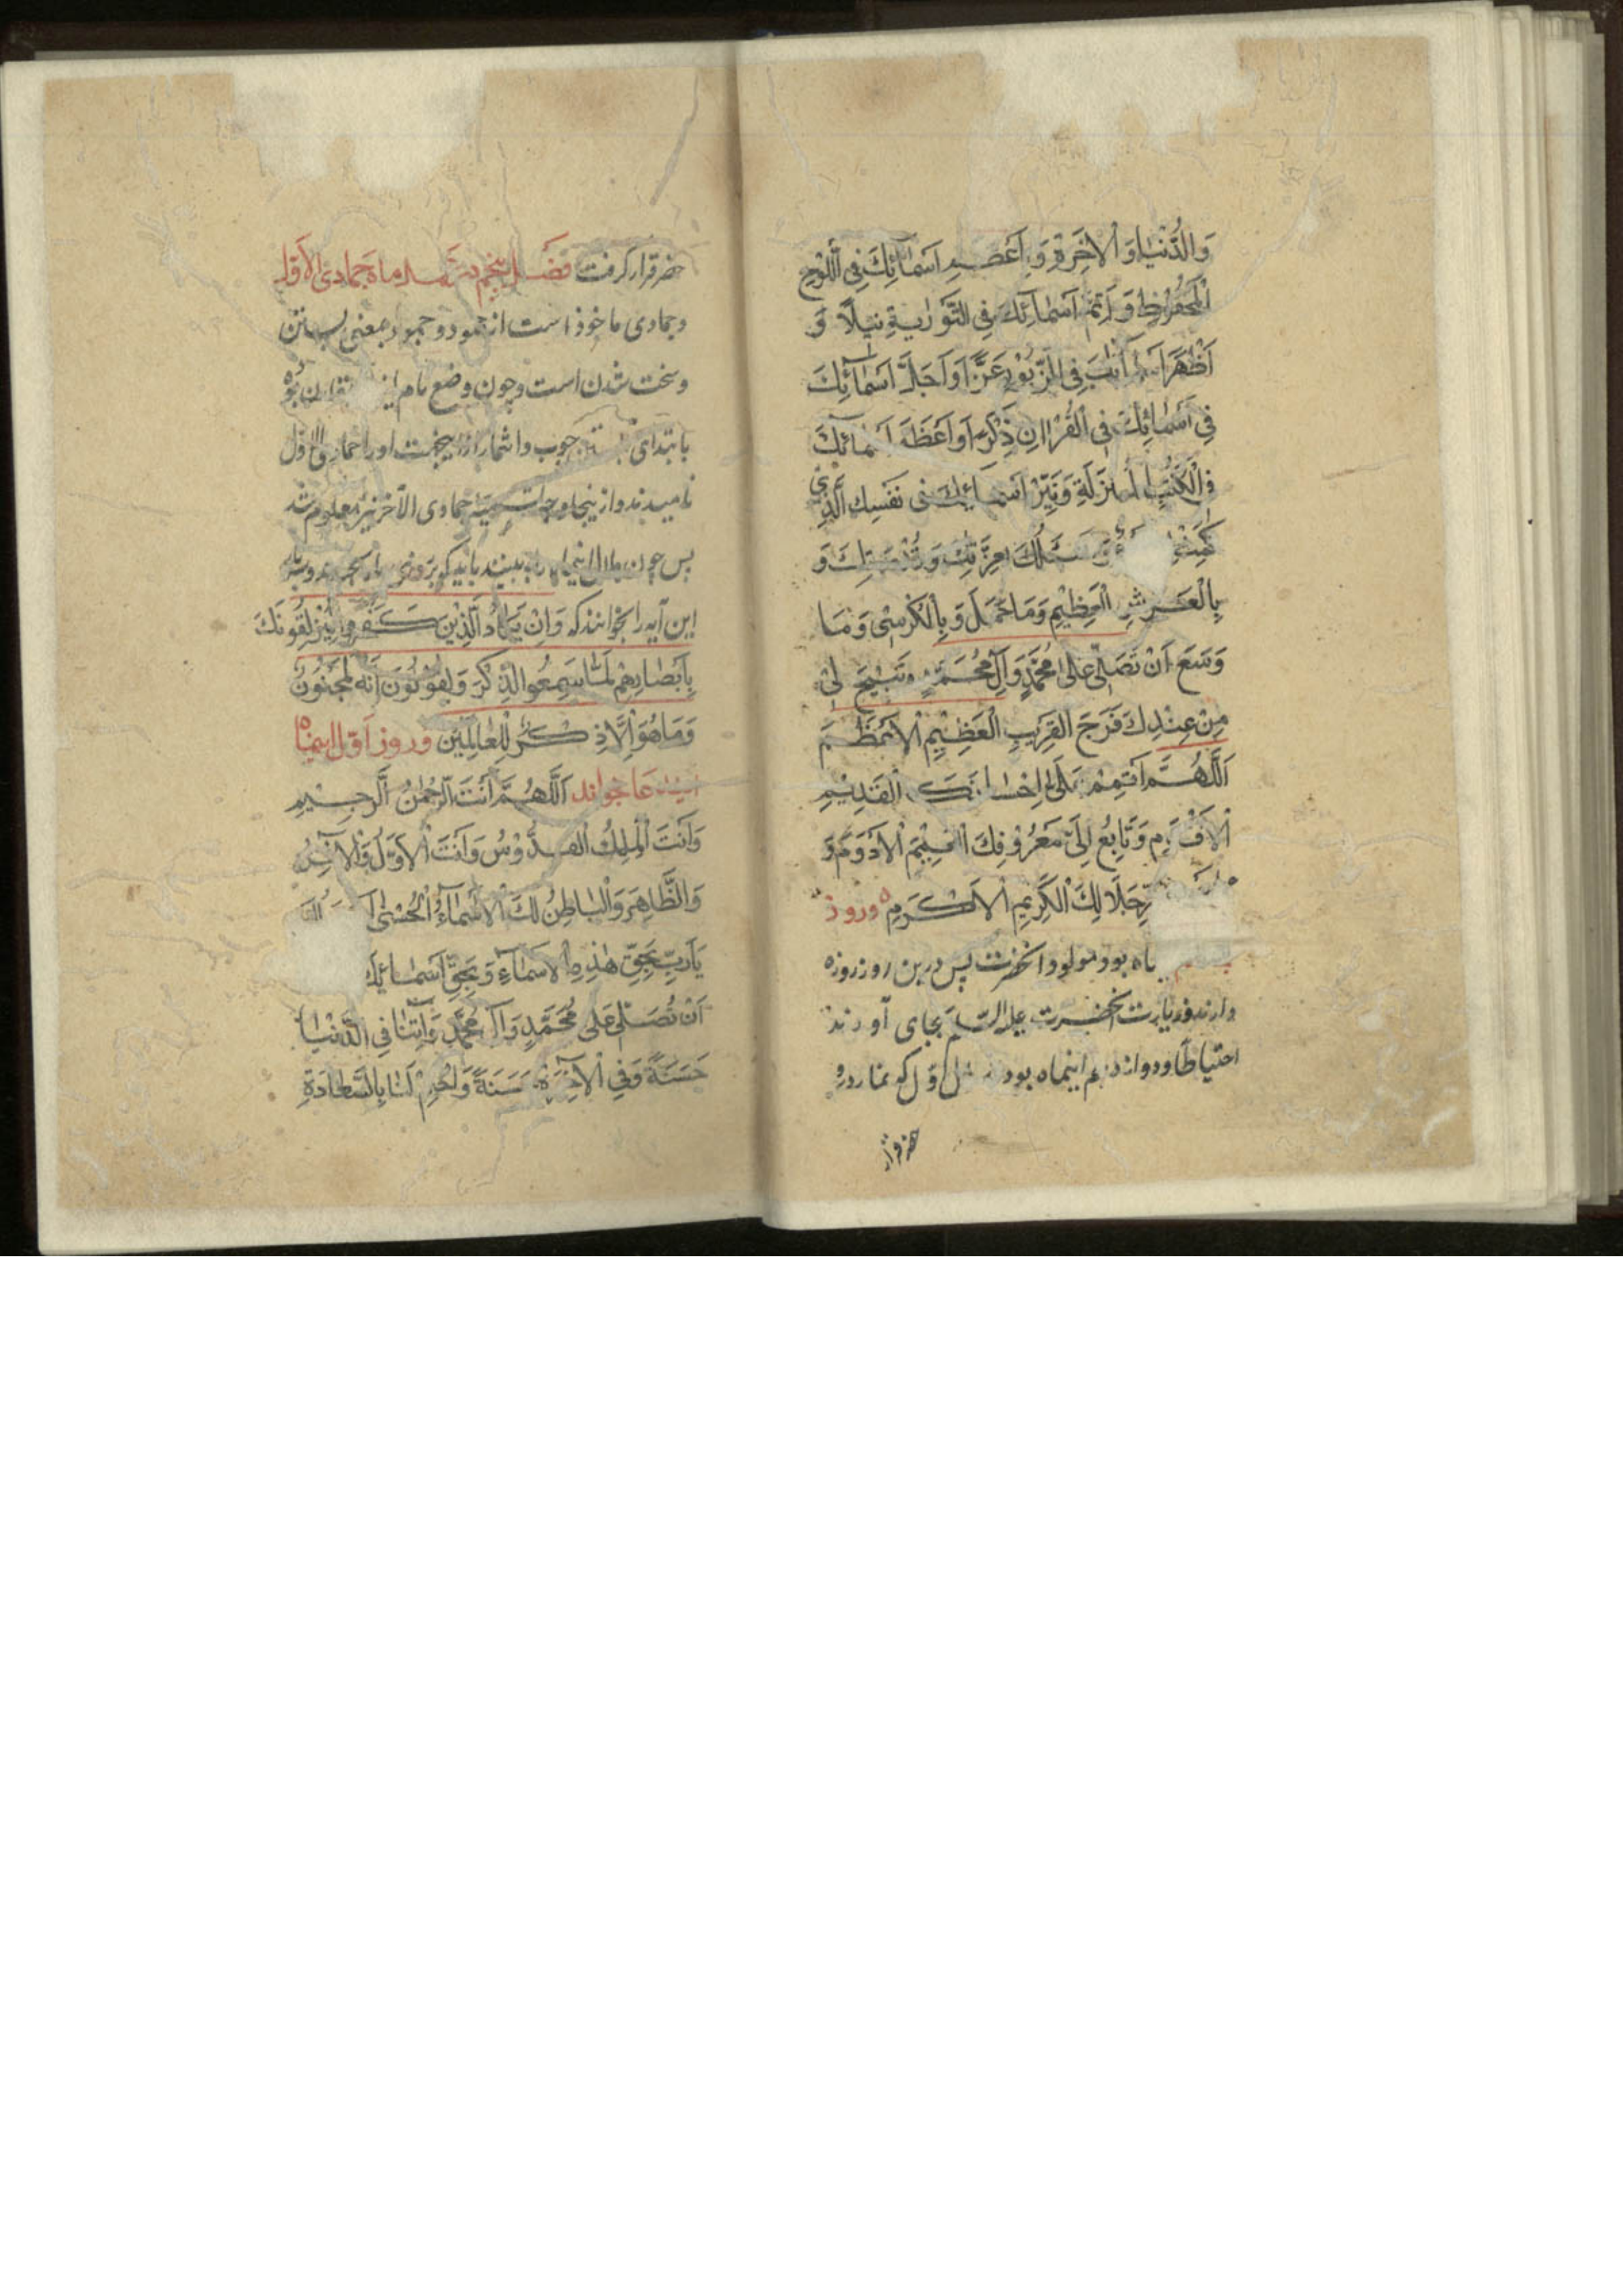 وَالدُّنْيَا وَالْاٰخِرَةِ وَ اَعْظَمِ اَسْمَآئِكَ فِی اللَّوْحِ
الْمَحْفُوظِ وَ اَتَمِّ اَسْمَآئِكَ فِی التَّوْرٰیةِ نَیْلًا وَ
اَظْهَرِ فِی الزَّبُوْرِ عَزًّا وَ اَجَلِّ اَسْمَآئِكَ
فِی اَسْمَائِكَ فِی الْقُرْاٰنِ ذِكْرًا وَ اَعْظَمِ اَسْمَائِكَ
فِی الْكُتُبِ الْمُنْزَلَةِ وَ اَسْمَائِكَ فِی نَفْسِكَ الَّذِی
عِزَّتِكَ وَ قُدْرَتِكَ وَ
بِالْعَرْشِ الْعَظِیْمِ وَمَا حَمَلَ وَ بِالْكُرْسِیِّ وَ مَا
وَسِعَ اَنْ تُصَلِّیَ عَلٰی مُحَمَّدٍ وَ آلِ مُحَمَّدٍ وَ تُبِیْحَ لِیْ
مِنْ عِنْدِكَ فَرَجَ الْقَرِیْبِ الْعَظِیْمِ الْاَعْظَمِ
اَللّٰهُمَّ اَتْمِمْ عَلَیَّ اِحْسَانَكَ الْقَدِیْمِ
الْاَقْدَمِ وَ تَابِعْ اِلَیَّ مَعْرُوْفَكَ الْاَدْوَمَ وَ
جَلَالِكَ الْكَرِیْمِ الْاَكْرَمِ وروز
ماه بود مولود آنحضرت پس درین روز روزه
دارند و زیارت آنحضرت علیه السلم بجای آورند
احتیاطا و دوازدهم اینماه بود اول که نماز در
حضر قرار
حضر قرار گرفت فصل پنجم در ماه جمادی الاول
و جمادی ماخوذ است از جمود و جمود بمعنی بستن
و سخت شدن است و چون وضع نام بود
بابتدای چوب و اشمار اورا جمادی الاول
نامیدند و از ینجا وجه تسمیه جمادی الآخر نیز معلوم شد
پس چون هلال اینماه را ببینند باید که
این آیه را بخوانند که وَاِنْ یَكَادُ الَّذِیْنَ كَفَرُوا لَیُزْلِقُوْنَكَ
بِاَبْصَارِهِمْ لَمَّا سَمِعُوا الذِّكْرَ وَ یَقُوْلُوْنَ اِنَّهُ لَمَجْنُوْنٌ
وَمَا هُوَ اِلَّا ذِكْرٌ لِلْعَالَمِیْنَ و روز اول اینماه
این دعا خواند اَللّٰهُمَّ اَنْتَ الرَّحْمٰنُ الرَّحِیْمِ
وَ اَنْتَ الْمَلِكُ الْقُدُّوْسُ وَ اَنْتَ الْاَوَّلُ وَ الْاٰخِرُ
وَالظَّاهِرُ وَ الْبَاطِنُ لَكَ الْاَسْمَآءُ الْحُسْنٰی
یَا رَبِّ بِحَقِّ هٰذِهِ الْاَسْمَآءِ وَ بِحَقِّ اَسْمَائِكَ
اَنْ تُصَلِّیَ عَلٰی مُحَمَّدٍ وَ آلِ مُحَمَّدٍ وَ اٰتِنَا فِی الدُّنْیَا
حَسَنَةً وَ فِی الْاٰخِرَةِ حَسَنَةً وَ اخْتِمْ لَنَا بِالسَّعَادَةِ